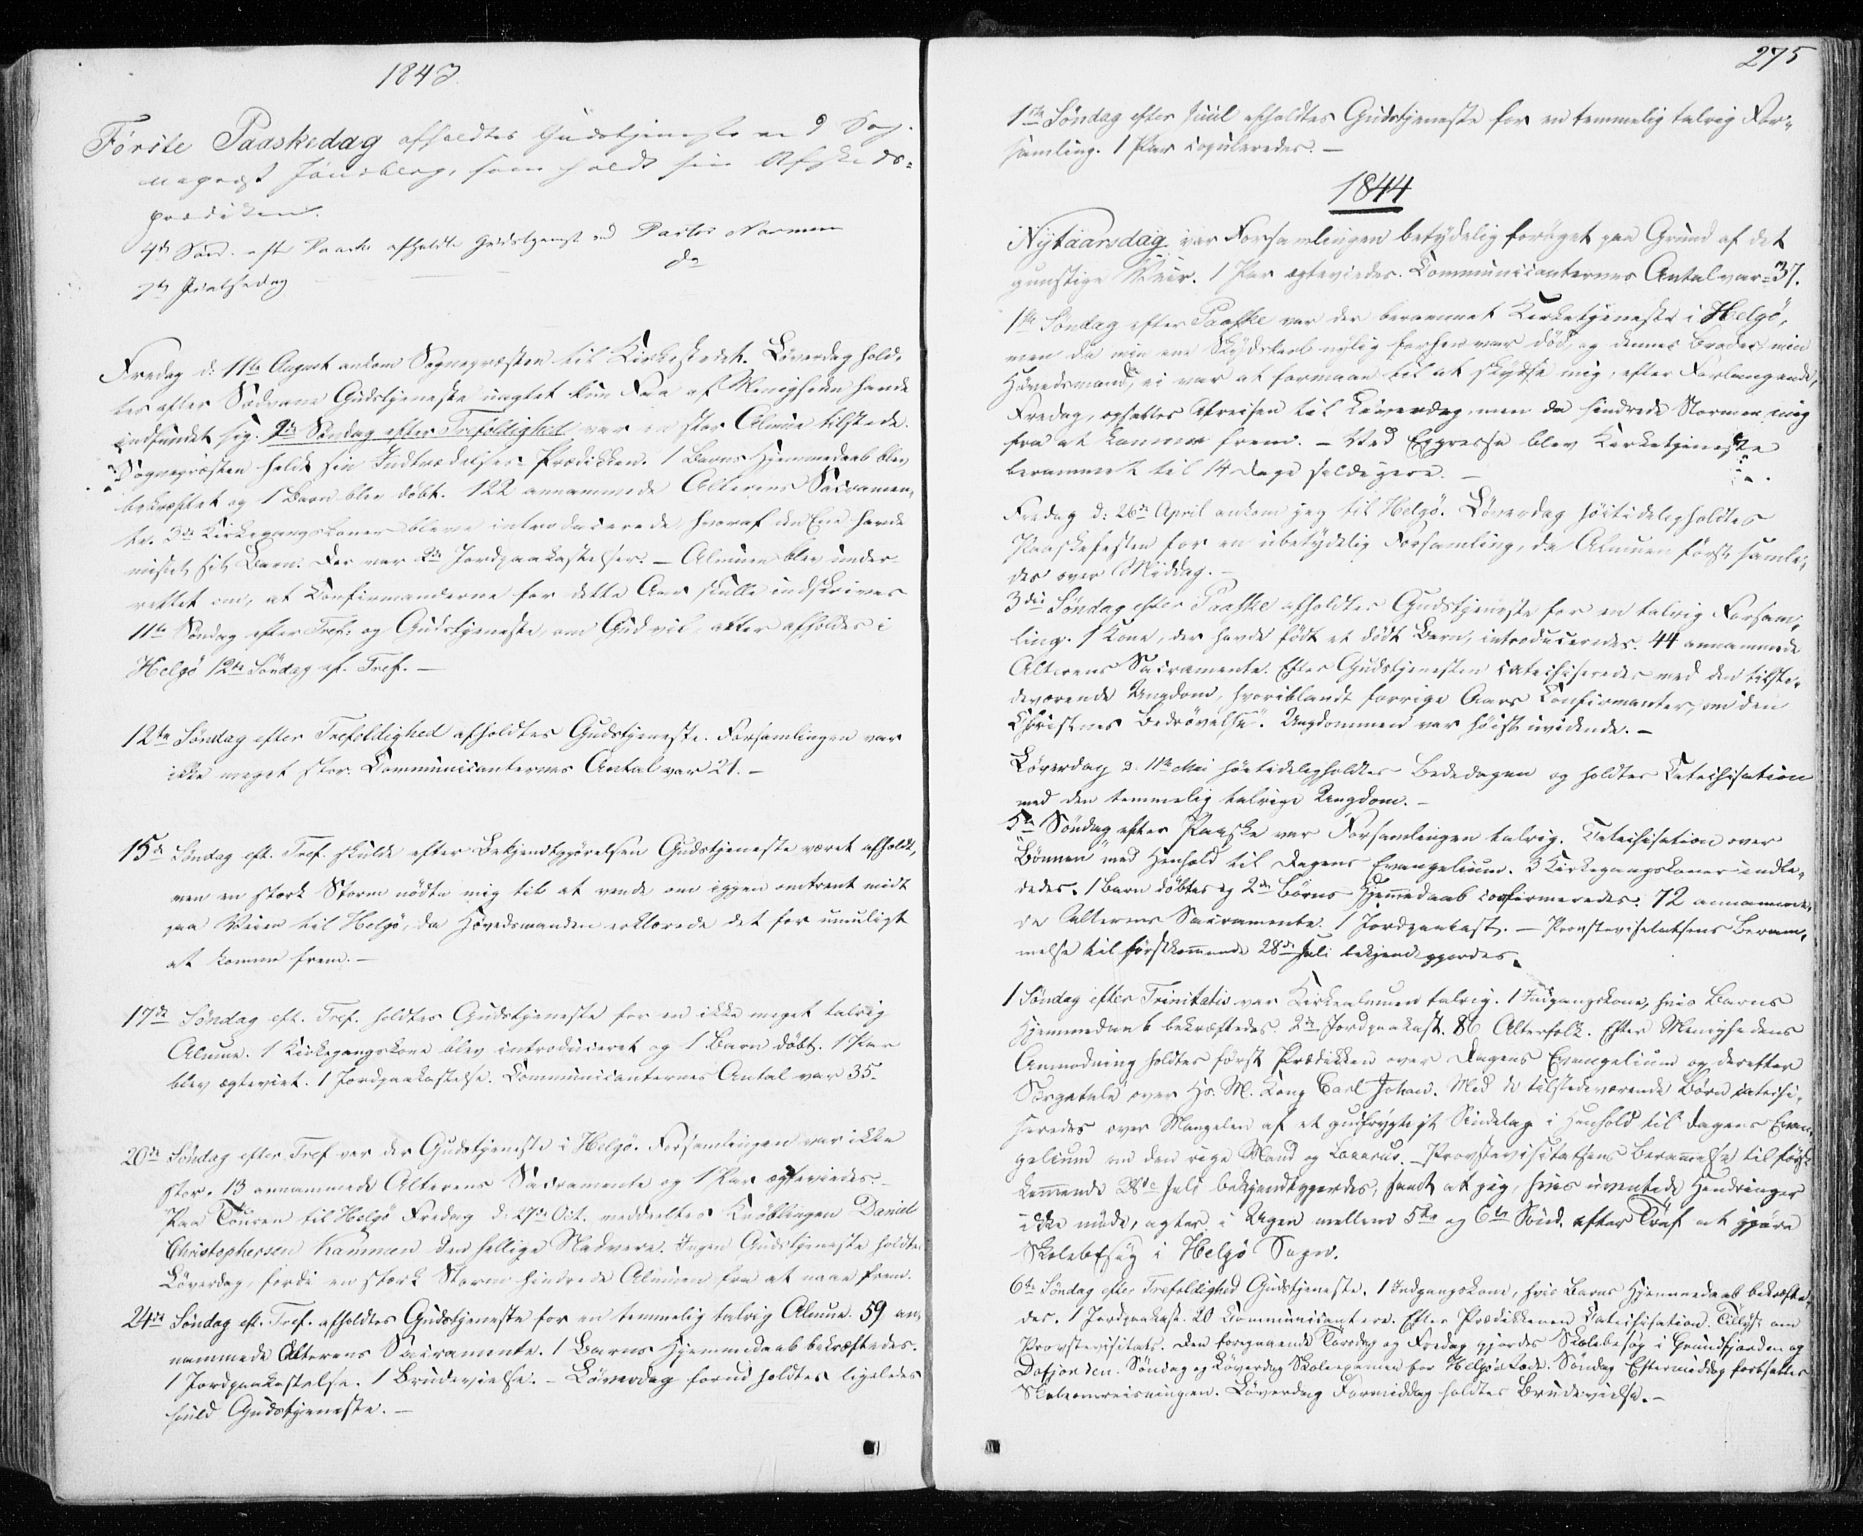 1843.
Første Paaskedag afholdtes Gudstjeneste ved Sog-
nepræst Jónsberg, som holdt sin Afskeds-
prædiken.
4de Sønd. efter Paaske afholdtes Gudstjenest ved Pastor Norman
2den Pintsedag — do
Fredag d: 11te August ankom Sognepræsten til Kirkestedet. Løverdag hold-
tes efter Sædvane Gudstjeneste uagtet kun Faa af Menigheden havde
indfundet sig. 9de Søndag efter Trefoldighed var en stor Almue tilstede.
Sognepræsten holdt sin Indtrædelses-Prædikken. 1 Barns Hjemmedaab blev
bekræftet og 1 Barn blev døbt. 122 annammede Alterens Sacramen-
te. 3de Kirkegangskoner bleve introducerede, hvoraf den Ene havde
mistet sit Barn. Der var 2de Jordpaakastelser. — Almuen blev under-
rettet om, at Confirmanderne for dette Aar skulle indskrives
11te Søndag efter Tref: og Gudstjeneste, om Gud vil, atter afholdes i
Helgö 12te Søndag ef. Tref. —
12te Søndag efter Trefoldighed afholdtes Gudstjeneste. Forsamlingen var
ikke meget stor. Communicanternes Antal var 21. —
15de Søndag eft. Tref. skulde efter Bekjendtgjørelsen Gudstjeneste været afholdt,
men en stærk Storm nødte mig til at vende om igjen omtrent midt
paa Veien til Helgö, da Høvedsmanden erklærede det for umuligt
at komme frem. —
17de Søndag eft. Tref. holdtes Gudstjeneste for en ikke meget talrig
Almue. 1 Kirkegangskone blev introduceret og 1 Barn døbt. 1 Par
blev ægteviet. 1 Jordpaakastelse. Communicanternes Antal var 35.
20de Søndag efter Tref var der Gudstjeneste i Helgö. Forsamlingen var ikke
stor. 13 annammede Alterens Sacramente og 1 Par ægteviedes. —
Paa Touren til Helgö Fredag d: 27de Oct. meddeeltes Krøblingen Daniel
Christophersen Kammen den hellige Nadvere. Ingen Gudstjeneste holdtes
Løverdag, fordi en stærk Storm hindrede Almuen fra at naae frem.
24de Søndag ef. Tref. afholdtes Gudstjeneste for en temmelig talrig Almue. 59 an-
nammede Alterens Sacramente. 1 Barns Hjemmedaab bekræftedes.
1 Jordpaakastelse. 1 Brudevielse. — Løverdag forud holdtes ligeledes
fuld Gudstjeneste. —
275
1ste Søndag efter Juul afholdtes Gudstjeneste for en temmelig talrig For-
samling. 1 Par copuleredes. —
1844
Nytaarsdag var Forsamlingen betydelig forøget paa Grund af det
gunstige Veir. 1 Par ægteviedes. Communicanternes Antal var 37.
1ste Søndag efter Paaske var der berammet Kirketjeneste i Helgö,
men da min ene Skydskarl nylig forhen var død, og dennes Broder, min
Høvedsmand, ei var at formaae til at skydse mig, efter Forlangende,
Fredag, opsattes Afreisen til Løverdag, men da hindrede Stormen mig
fra at komme frem. — Ved Expresse blev Kirketjeneste
berammet til 14 Dage seldigere. —
Fredag d: 26de April ankom jeg til Helgö. Løverdag høitideligholdtes
Paaskefesten for en ubetydelig Forsamling, da Almuen først samle-
des over Middag. —
3die Søndag efter Paaske afholdtes Gudstjeneste for en talrig Forsam-
ling. 1 Kone, der havde født et dødt Barn, introduceredes. 44 annammede
Alterens Sacramente. Efter Gudstjenesten catechiseredes med den tilste-
deværende Ungdom, hvoriblandt forrige Aars Confirmanter, om den
Christnes Bedrøvelse". Ungdommen var høist uvidende. —
Løverdag d. 11te Mai høitideligholdtes Bededagen og holdtes Catechisation
med den temmelig talrige Ungdom. —
5te Søndag efter Paaske var Forsamlingen talrig. Catechisation over
"Bønnen" med Henhold til Dagens Evangelium. 3 Kirkegangskoner indle-
dedes. 1 Barn døbtes og 2de Børns Hjemmedaab confirmeredes. 72 annamme-
de Alterens Sacramente. 1 Jordpaakast. — Provstevisitatsens Beram-
melse til førstkommende 28de Juli bekjendtgjordes.
1 Søndag efter Trinitatis var Kirkealmuen talrig. 1 Indgangskone, hvis Barns
Hjemmedaab bekræftedes. 2de Jordpaakast. 86 Alterfolk. Efter Menighedens
Anmodning holdtes først Prædikken over Dagens Evangelium og derefter
Sørgetale over Hs. M. Kong Carl Johan. Med de tilstedeværende Børn catechi-
seredes over Mangelen af et gudfrygtigt Sindelag i Henhold til Dagens Evan-
gelium om den rige Mand og Lazarus. — Provstevisitatsens Berammelse til først-
kommende 28de Juli bekjendtgjordes, samt at jeg, hvis uventede Hindringer
ikke møde, agter i Ugen mellem 5te og 6te Sønd. efter Tref at gjøre
Skolebesøg i Helgö Sogn.
6te Søndag efter Trefoldighed Gudstjeneste. 1 Indgangskone, hvis Barns Hjemmedaab bekræfte-
des. 1 Jordpaakast. 20 Communicantere. Efter Prædikkenen Catechisation. Tillyst om
Provstevisitats. Den foregaaende Torsdag og Fredag gjordes Skolebesøg i Grundfjorden og
Dafjorden. Søndag og Løverdag Skoleexamen for Helgö Rode. Søndag Eftermiddag fortsattes
Skoleomreisningen. Løverdag Formiddag holdtes Brudevielse. —